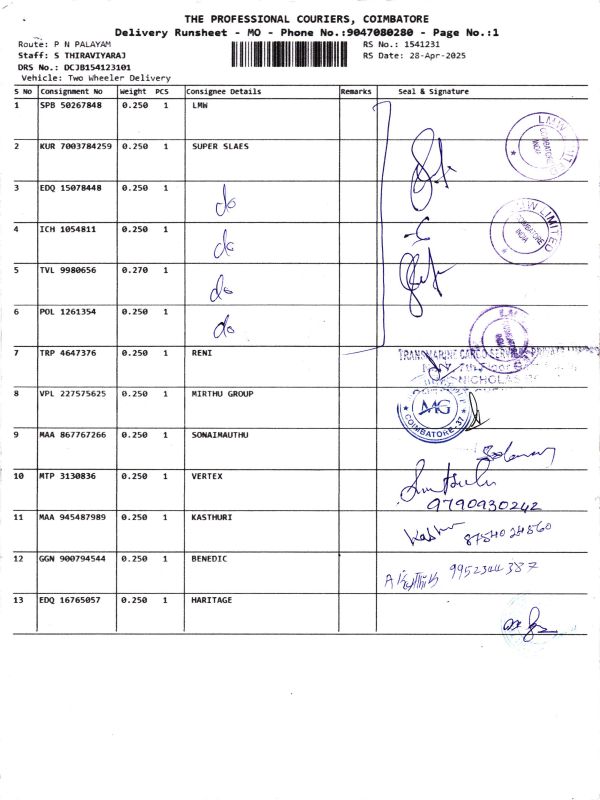 THE PROFESSIONAL COURIERS, COIMBATORE
Delivery Runsheet - MO - Phone No.:9047080280 - Page No.:1
Route: P N PALAYAM RS No.: 1541231
Staff: S THIRAVIYARAJ RS Date: 28-Apr-2025
DRS No.: DCJB154123101
Vehicle: Two Wheeler Delivery
S No Consignment No Weight PCS Consignee Details Remarks Seal & Signature
1 SPB 50267848 0.250 1 LMW
2 KUR 7003784259 0.250 1 SUPER SLAES
3 EDQ 15078448 0.250 1 do
4 ICH 1054811 0.250 1 do
LMW LIMITED
COIMBATORE
INDIA
5 TVL 9980656 0.270 1 do
6 POL 1261354 0.250 1 do
7 TRP 4647376 0.250 1 RENI
TRANSMARINE CARGO SERVICES PRIVATE
NICHOLAS
8 VPL 227575625 0.250 1 MIRTHU GROUP
MG
COIMBATORE-37
9 MAA 867767266 0.250 1 SONAIMAUTHU
10 MTP 3130836 0.250 1 VERTEX
9790930242
11 MAA 945487989 0.250 1 KASTHURI
8754024560
12 GGN 900794544 0.250 1 BENEDIC
9952344387
13 EDQ 16765057 0.250 1 HARITAGE